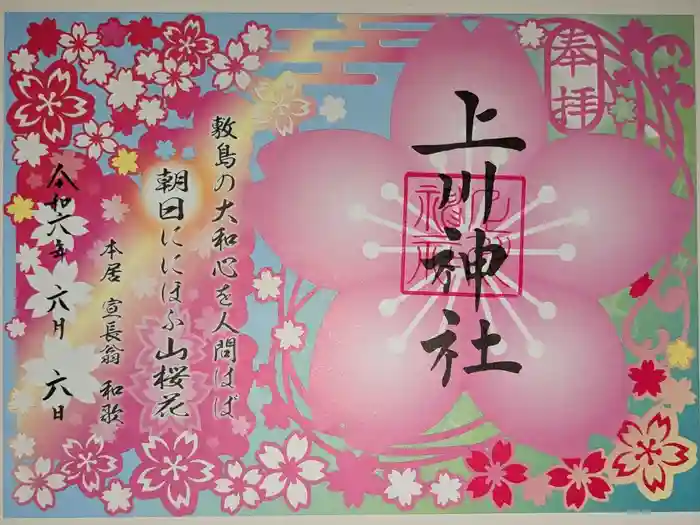 奉拝
上川神社
敷島の大和心を人問はば
朝日ににほふ山桜花
本居宣長翁 和歌
令和六年 六月 六日